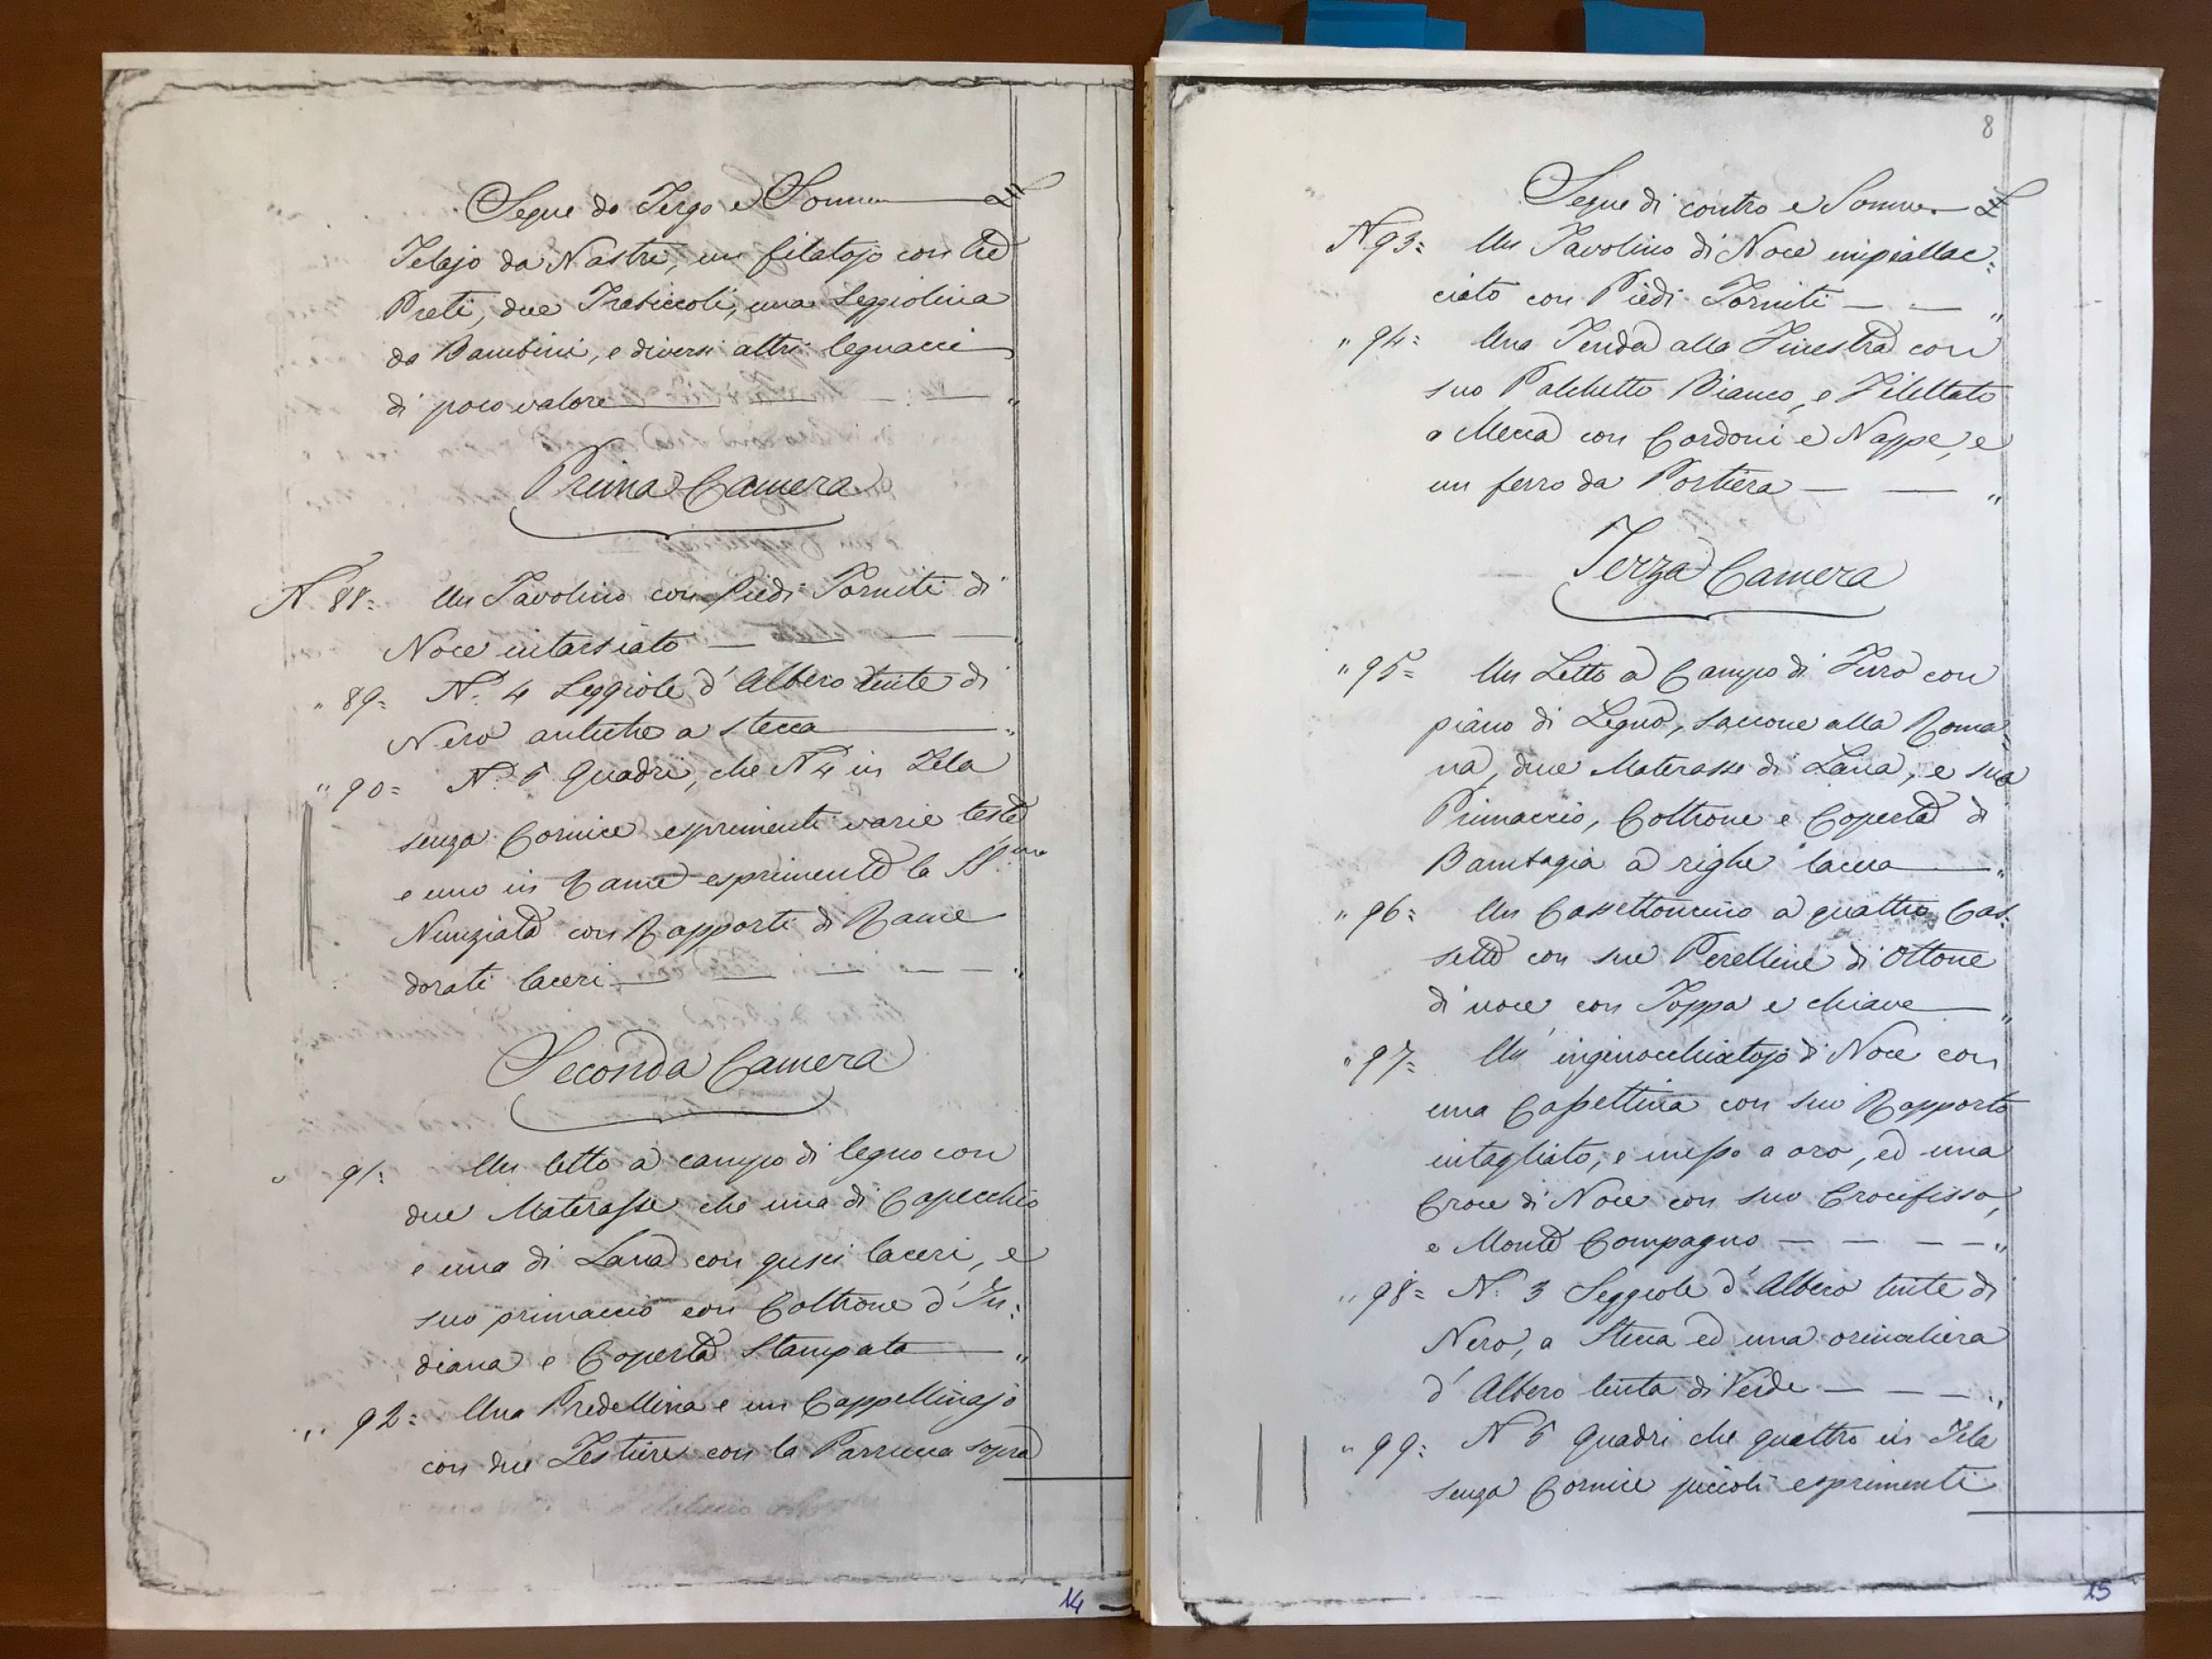 Segue da Tergo e Somma £
Telajo da Nastri, un filatojo con tre
Preti, due Trabiccoli, una Seggiolina
da Bambini, e diversi altri legnacci
di poco valore — — — "
Prima Camera
N 88= Un Tavolino con Piedi Torniti di
Noce intarsiato — — — — "
" 89= N. 4 Seggiole d'Albero tinte di
Nero antiche a stecca — "
" 90= N. 5 Quadri, che N 4 in Tela
senza Cornice esprimenti varie teste
e uno in Rame esprimente la SS.ma
Nunziata con Rapporti di Rame
dorati laceri — — — — — "
Seconda Camera
" 91= Un letto a campo di legno con
due Materasse che una di Capecchio
e una di Lana con gusci laceri, e
suo primaccio con Coltrone d'In=
diana e Coperta Stampata — "
" 92= Una Predellina e un Cappellinajo
con due Testiere con la Parrucca sopra
14
8
Segue di contro e Somma — £
N 93= Un Tavolino di Noce impiallac=
ciato con Piedi Torniti — — "
" 94= Una Tenda alla Finestra con
suo Palchetto Bianco, e Filettato
a Mecca con Cordoni e Nappe, e
un ferro da Portiera — — "
Terza Camera
" 95= Un Letto a Campo di Ferro con
piano di Legno, saccone alla Roma=
na, due Materasse di Lana, e suo
Primaccio, Coltrone e Coperta di
Bambagia a righe lacera — "
" 96= Un Cassettoncino a quattro Cas=
sette con sue Perelline di Ottone
di noce con Toppa e chiave — "
" 97= Un inginocchiatojo di Noce con
una Cassettina con suo Rapporto
intagliato, e messo a oro, ed una
Croce di Noce con suo Crocifisso,
e Monte Compagno — — — — "
" 98= N. 3 Seggiole d'Albero tinte di
Nero, a Stecca ed una orinaliera
d'Albero tinta di Verde — — — "
" 99= N 5 Quadri che quattro in Tela
senza Cornice piccoli esprimenti
15